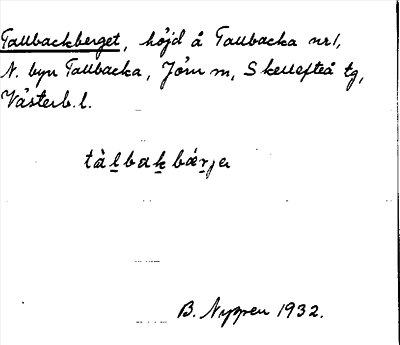 Tallbackberget, höjd å Tallbacka nr 1,
N. byn Tallbacka, Jörn sn, Skellefteå tg,
Västerb. l.
tàl̠bak̠bǽr̠je
B. Nyzren 1932.